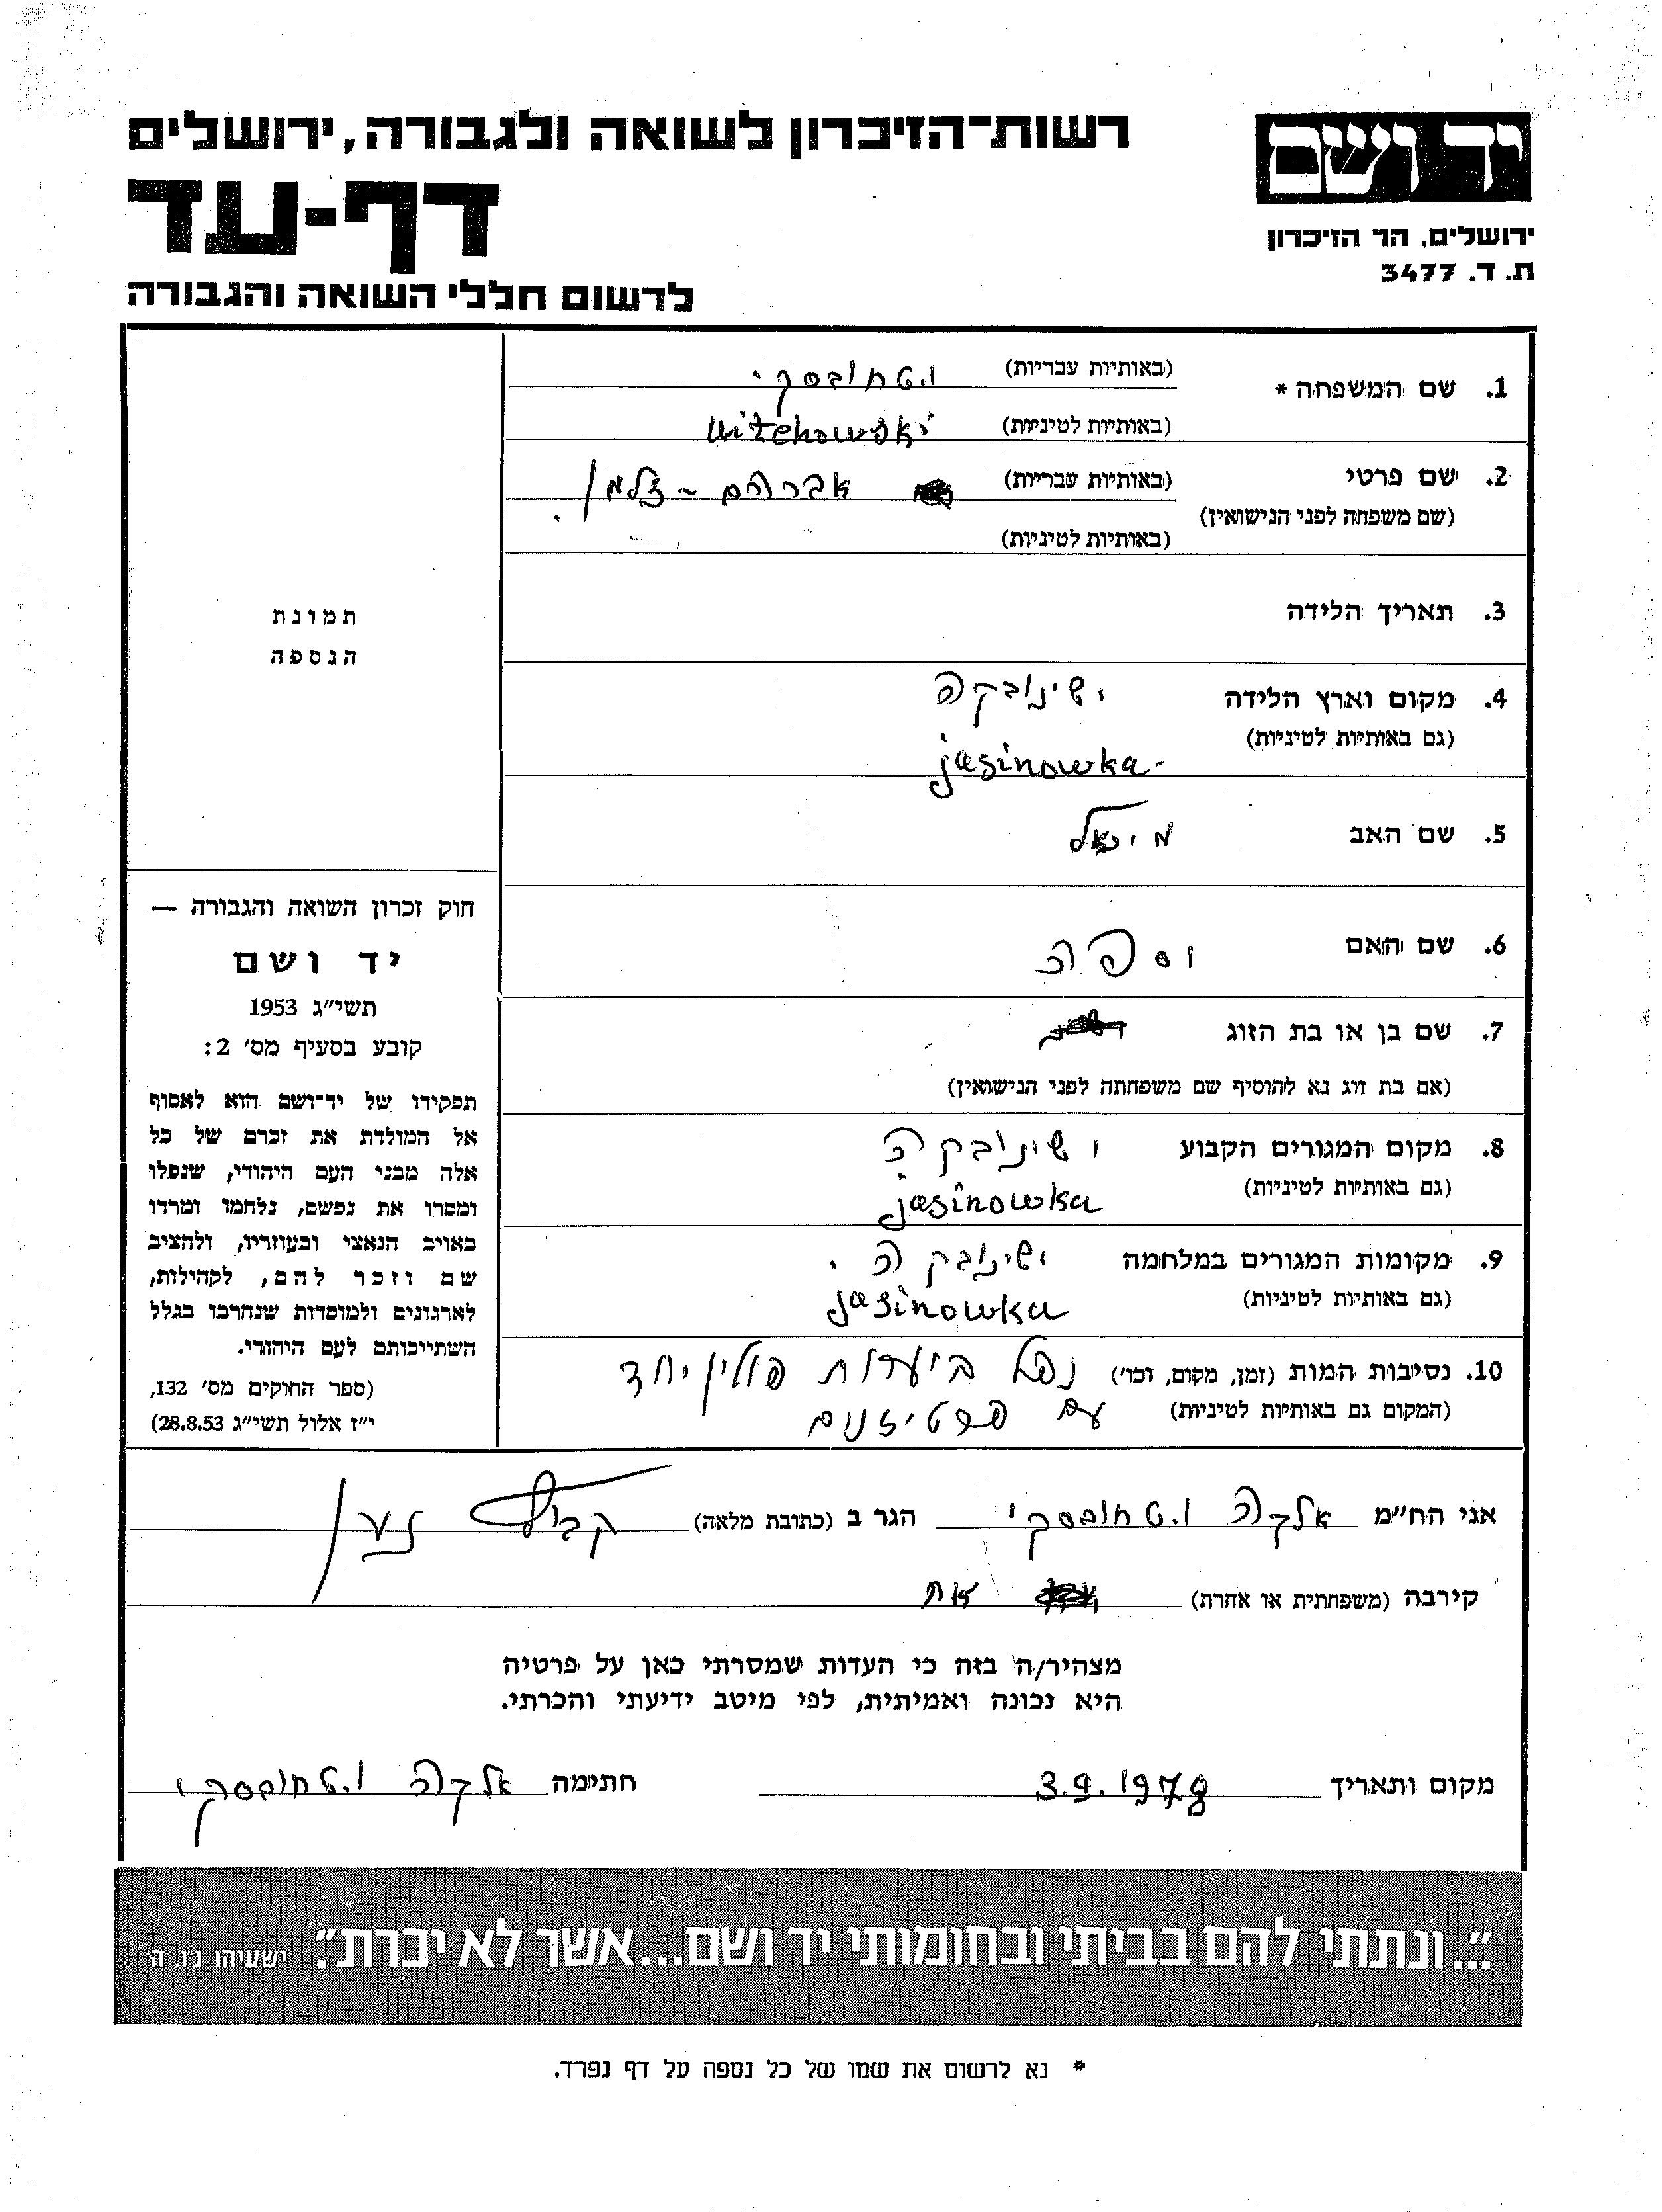 יד ושם
ירושלים, הר הזיכרון
ת. ד. 3477
רשות-הזיכרון לשואה ולגבורה, ירושלים
דף-עד
לרשום חללי השואה והגבורה
1. שם המשפחה * (באותיות עבריות) ויטחובסקי
(באותיות לטיניות) witchowski
2. שם פרטי (באותיות עבריות) אברהם - זלמן
(שם משפחה לפני הנישואין)
(באותיות לטיניות)
3. תאריך הלידה
4. מקום וארץ הלידה ישינובקה
(גם באותיות לטיניות) jasinowka
5. שם האב מיכאל
6. שם האם
7. שם בן או בת הזוג
(אם בת זוג נא להוסיף שם משפחתה לפני הנישואין)
8. מקום המגורים הקבוע ישינובקה
(גם באותיות לטיניות) jasinowka
9. מקומות המגורים במלחמה ישינובקה.
(גם באותיות לטיניות) jasinowka
10. נסיבות המות (זמן, מקום, וכו') נפל ביערות פולין יחד
(המקום גם באותיות לטיניות) עם פרטיזנים
תמונת
הנספה
חוק זכרון השואה והגבורה —
יד ושם
תשי"ג 1953
קובע בסעיף מס' 2:
תפקידו של יד-ושם הוא לאסוף
אל המולדת את זכרם של כל
אלה מבני העם היהודי, שנפלו
ומסרו את נפשם, נלחמו ומרדו
באויב הנאצי ובעוזריו, ולהציב
שם וזכר להם, לקהילות,
לארגונים ולמוסדות שנחרבו בגלל
השתייכותם לעם היהודי.
(ספר החוקים מס' 132,
י"ז אלול תשי"ג 28.8.53)
אני הח"מ אלקה ויטחובסקי הגר ב (כתובת מלאה) קבוץ נען
קירבה (משפחתית או אחרת) אח
מצהיר/ה בזה כי העדות שמסרתי כאן על פרטיה
היא נכונה ואמיתית, לפי מיטב ידיעתי והכרתי.
מקום ותאריך 3.9.1978 חתימה אלקה ויטחובסקי
"...ונתתי להם בביתי ובחומותי יד ושם...אשר לא יכרת". ישעיהו נ"ו. ה
* נא לרשום את שמו של כל נספה על דף נפרד.